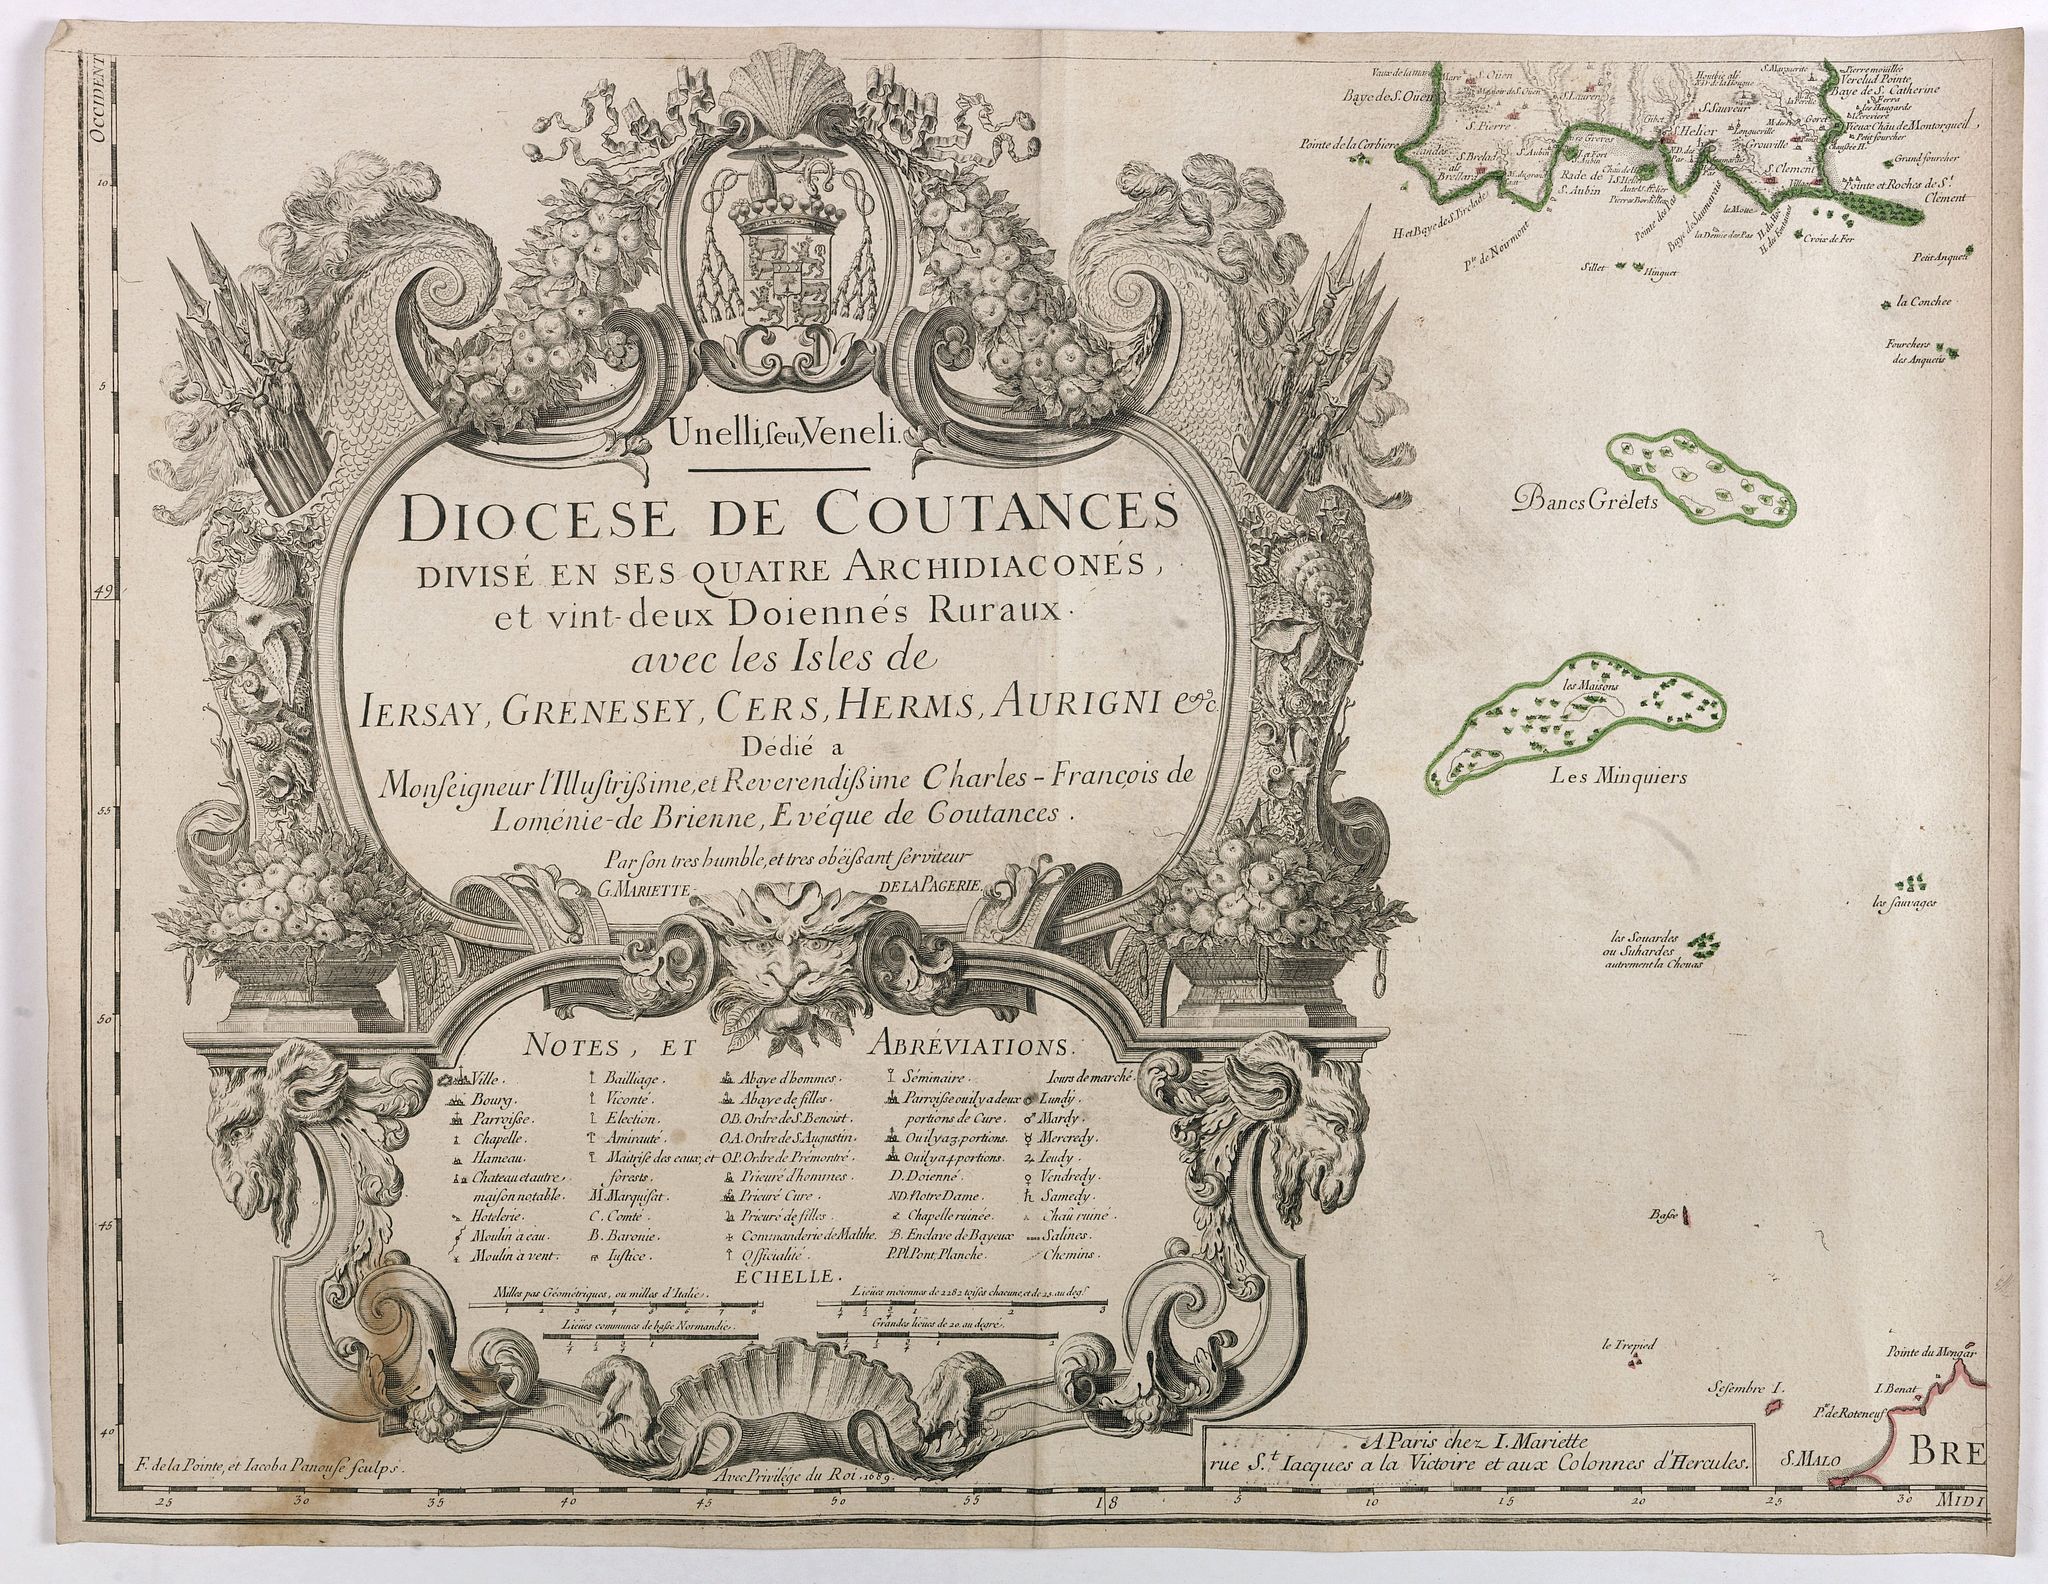 OCCIDENT
Unelli, seu, Veneli.
DIOCESE DE COUTANCES
DIVISÉ EN SES QUATRE ARCHIDIACONÉS,
et vint-deux Doiennés Ruraux.
avec les Isles de
IERSAY, GRENESEY, CERS, HERMS, AURIGNI &c.
Dédié a
Monseigneur l'Illustrissime, et Reverendissime Charles-François de
Loménie-de Brienne, Evéque de Coutances.
Par son tres humble, et tres obéissant serviteur
G. MARIETTE DE LA PAGERIE.
NOTES, ET ABRÉVIATIONS.
Ville.
Bourg.
Parroisse.
Chapelle.
Hameau.
Chateau et autre
maison notable.
Hotelerie.
Moulin à eau.
Moulin à vent.
Bailliage.
Viconté.
Election.
Amirauté.
Maitrise des eaux, et
forests.
M. Marquisat.
C. Comté.
B. Baronie.
Iustice.
Abaye d'hommes.
Abaye de filles.
O.B. Ordre de S. Benoist.
O.A. Ordre de S. Augustin.
O.P. Ordre de Prémontré.
Prieuré d'hommes.
Prieuré Cure.
Prieuré de filles.
Commanderie de Malthe.
Officialité.
Séminaire.
Parroisse ou il y a deux
portions de Cure.
Ou il y a 3 portions.
Ou il y a 4 portions.
D. Doienné.
ND. Notre Dame.
Chapelle ruinée.
B. Enclave de Bayeux
P. Pl. Pont, Planche.
Iours de marché.
☾ Lundy.
♂ Mardy.
☿ Mercredy.
♃ Ieudy.
♀ Vendredy.
♄ Samedy.
Chau ruiné.
Salines.
Chemins.
ECHELLE.
Milles pas Géométriques, ou milles d'Italie.
1 2 3 4 5 6 7 8
Lieües moiennes de 2282 toises chacune, et de 25. au deg.
1 2 3
Lieües communes de basse Normandie.
1 2
Grandes lieües de 20. au degré.
1 2
F. de la Pointe, et Iacoba Panouse sculps.
Avec Privilége du Roi. 1689.
A Paris chez I. Mariette
rue S.t Iacques a la Victoire et aux Colonnes d'Hercules.
10
5
49
55
50
45
40
25 30 35 40 45 50 55 18 5 10 15 20 25 30
MIDI
Baye de S. Oüen
S. Oüen
Manoir de S. Oüen
S. Pierre
S. Laurens
S. Sauveur
S. Helier
Gibet
Longueville
Grouville
Goret
S. Clement
S. Marguerite
Pierre mouillée
Verclud Pointe
Baye de S. Catherine
Ferra
les Haugards
Vieux Châu de Montorgueil
Petit fourcher
Chaussée H.
Grand fourcher
Pointe et Roches de S.t
Clement
Pointe de la Corbiere
S. Brelad
S. Aubin
Rade de
S. Aubin
H. et Baye de S. Brelade
P.te de Noirmont
Pointe des Pas
Baye de Saumarais
la Motte
la Demie des Pas
Croix de Fer
Sillet
Hinguet
Petit Anquet
la Conchee
Fourchers
des Anquetis
Bancs Grêlets
les Maisons
Les Minquiers
les Sauvages
les Souardes
ou Suhardes
autrement la Chouas
Basse
le Trepied
Sesembre I.
Pointe du Mengar
I. Benat
P.te de Roteneuf
S. MALO
BRE